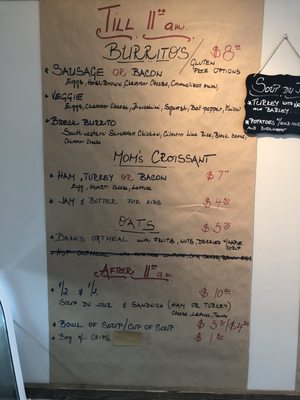 TILL 11 a.m.
BURRITOS / $8
GLUTEN
FREE OPTIONS
* SAUSAGE OR BACON
Eggs, Hash Brown, Cheddar Cheese, Caramelized Onion
* VEGGIE
Eggs, Cheddar Cheese, Zucchini, Squash, Bell pepper, Onion
* BRECK BURRITO
Southwestern Shredded Chicken, Cilantro Lime Rice, Black beans,
Cheddar Cheese
MOM'S CROISSANT
* HAM, TURKEY OR BACON $7
Egg, Cheese, Lettuce
* JAM & BUTTER FOR KIDS $4
OATS $5
* BAKED OATMEAL WITH FRUITS, NUTS DRIZZLED W/MAPLE
HOT OATMEAL
AFTER 11 a.m.
* 1/2 & 1/2 $10
SOUP DU JOUR & SANDWICH (HAM OR TURKEY)
Cheese, Lettuce, Tomato
* BOWL OF SOUP/CUP OF SOUP $5/$4
* Bag of CHIPS $1
SOUP DU
* TURKEY WITH
AND BARLEY
* POTATOES,
AND